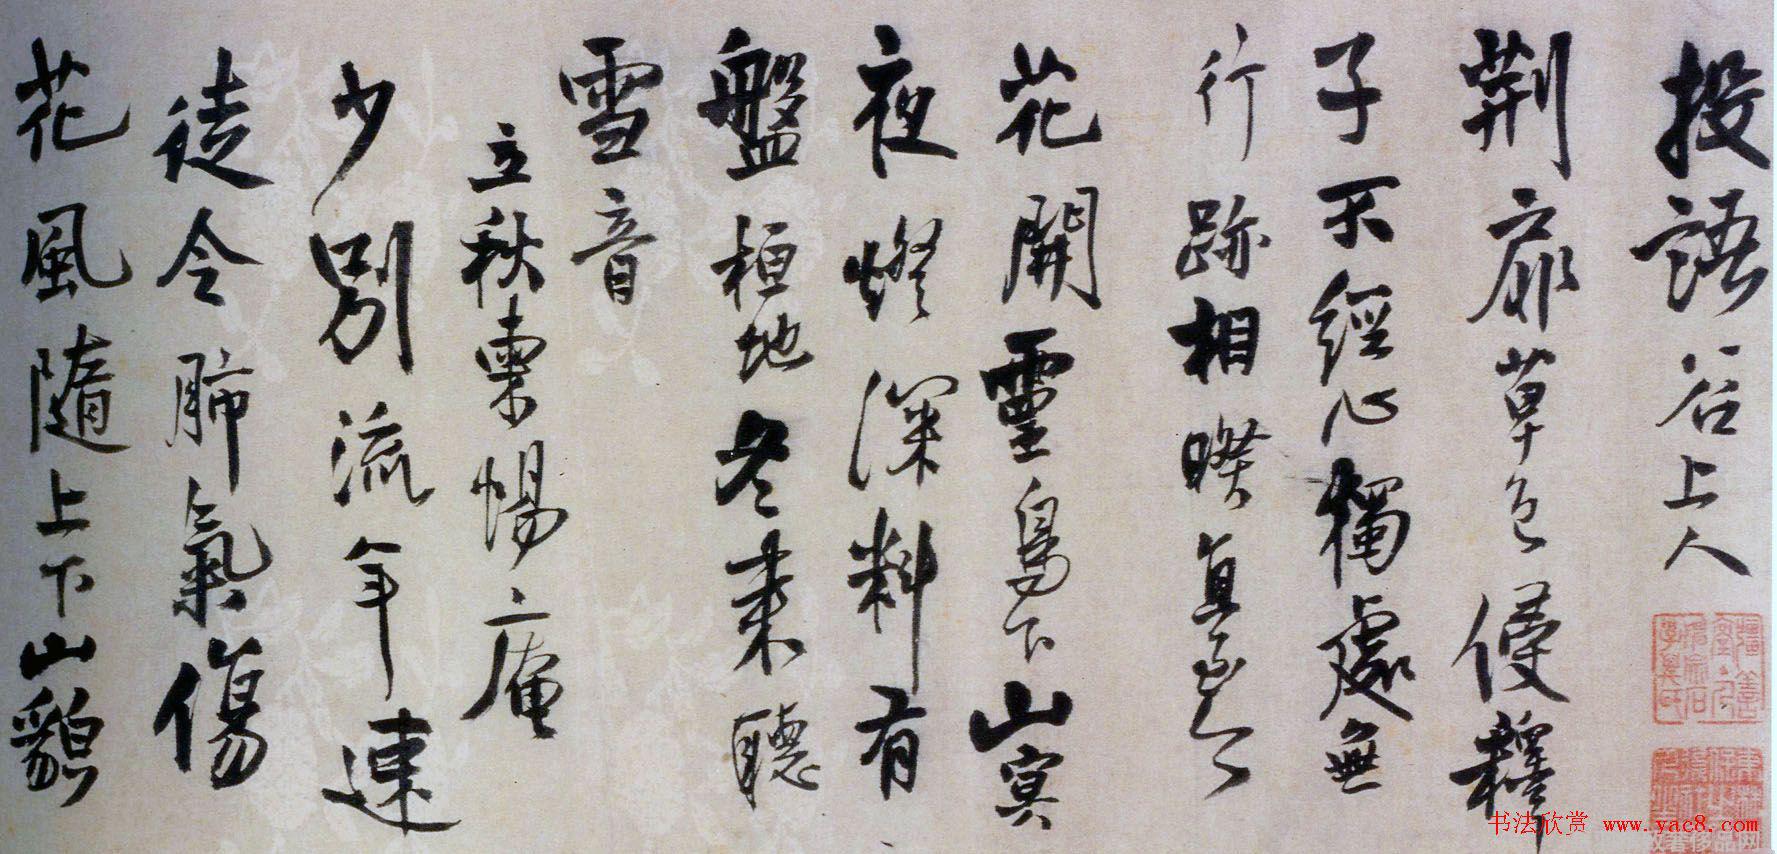 投語谷上人
荆扉草色侵釋
子不經心獨處無
行跡相暌直至今
花開靈鳥下山冥
夜燈深料有
盤桓地冬來聽
雪音
立秋柬惕庵
少別流年速
徒令肺氣傷
花風隨上下山貌
书法欣赏 www.yac8.com